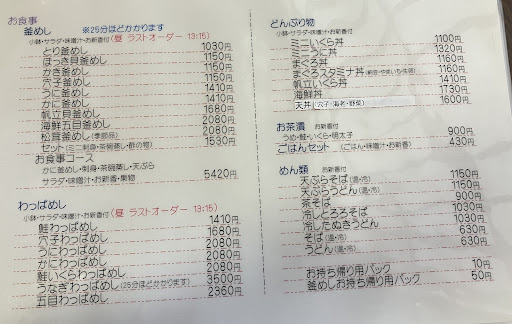 お食事
釜めし ※25分ほどかかります
小鉢・サラダ・味噌汁・お新香付(昼 ラストオーダー 13:15)
とり釜めし 1030円
ほっき貝釜めし 1150円
かき釜めし 1150円
穴子釜めし 1150円
うに釜めし 1410円
かに釜めし 1410円
帆立貝釜めし 1680円
海鮮五目釜めし 2080円
松茸釜めし(季節品) 2080円
セット(ミニ刺身・茶碗蒸し・酢の物) 1530円
お食事コース
かに釜めし・刺身・茶碗蒸し・天ぷら
サラダ・味噌汁・お新香・果物 5420円
わっぱめし
小鉢・サラダ・味噌汁・お新香付(昼 ラストオーダー 13:15)
鮭わっぱめし 1410円
穴子わっぱめし 1680円
うにわっぱめし 2080円
かにわっぱめし 2080円
鮭いくらわっぱめし 2080円
うなぎわっぱめし(25分ほどかかります) 3500円
五目わっぱめし 2360円
どんぶり物
小鉢・サラダ・味噌汁・お新香付
ミニいくら丼 1100円
ミニうに丼 1320円
まぐろ丼 1160円
まぐろスタミナ丼 1160円
帆立いくら丼 1410円
海鮮丼 1730円
天丼(穴子・海老・野菜) 1600円
お茶漬 お新香付
うめ・鮭・いくら・明太子 900円
ごはんセット (ごはん・味噌汁・お新香) 430円
めん類 お新香付
天ぷらそば(温・冷) 1150円
天ぷらうどん(温・冷) 1150円
茶そば 900円
冷しとろろそば 1030円
冷したぬきうどん 1030円
そば(温・冷) 630円
うどん(温・冷) 630円
お持ち帰り用パック 10円
釜めしお持ち帰り用パック 50円